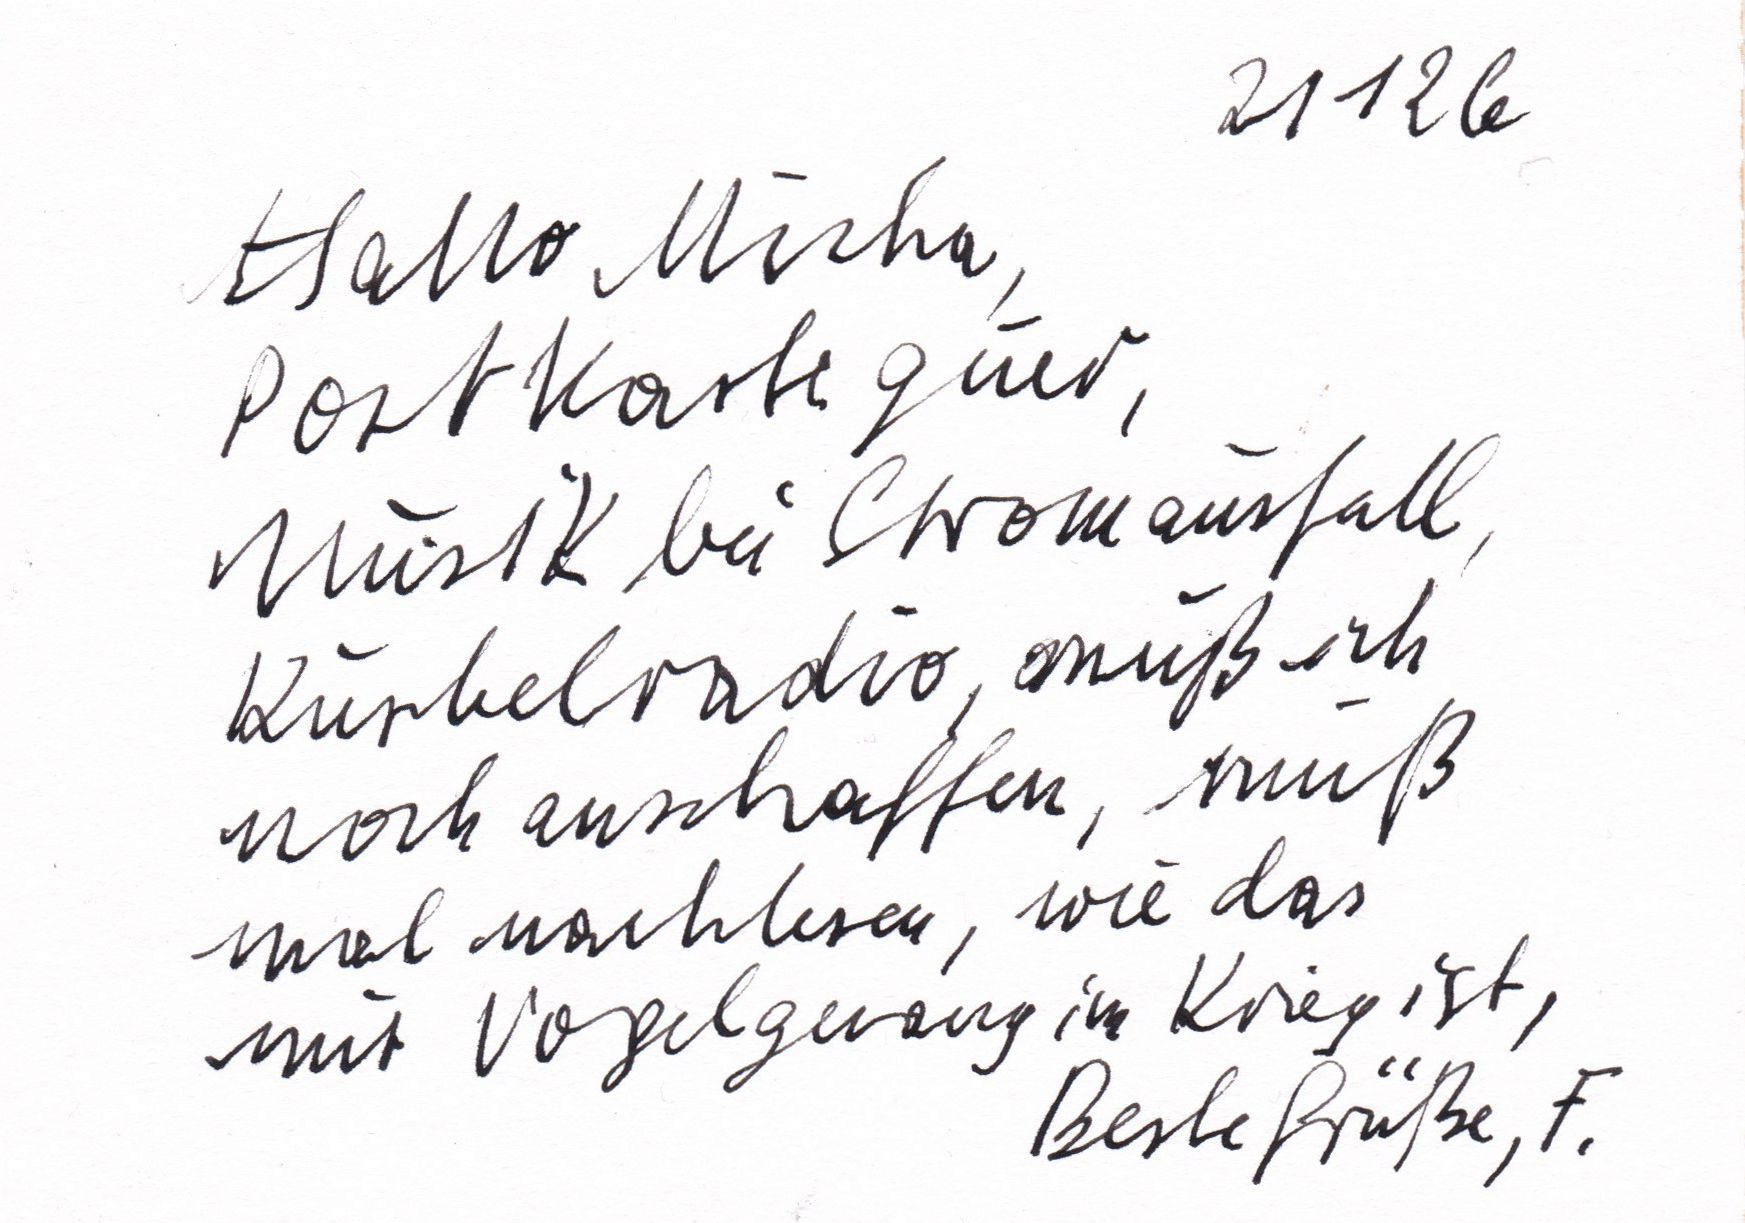 21 1 26
Hallo Micha,
Postkarte quer,
Musik bei Stromausfall,
Kurbelradio, muß ich
noch anschaffen, muß
mal nachlesen, wie das
mit Vogelgesang im Krieg ist,
Beste Grüße, F.